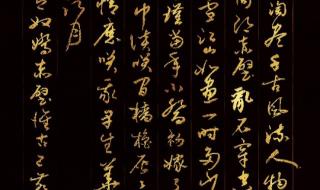 淘盡千古風流人物
周郎赤壁亂石穿空
雪江山如畫一時多少
瑾當年小喬初嫁了
巾談笑間檣櫓灰
情應笑我早生華
江月
念奴嬌赤壁懷古